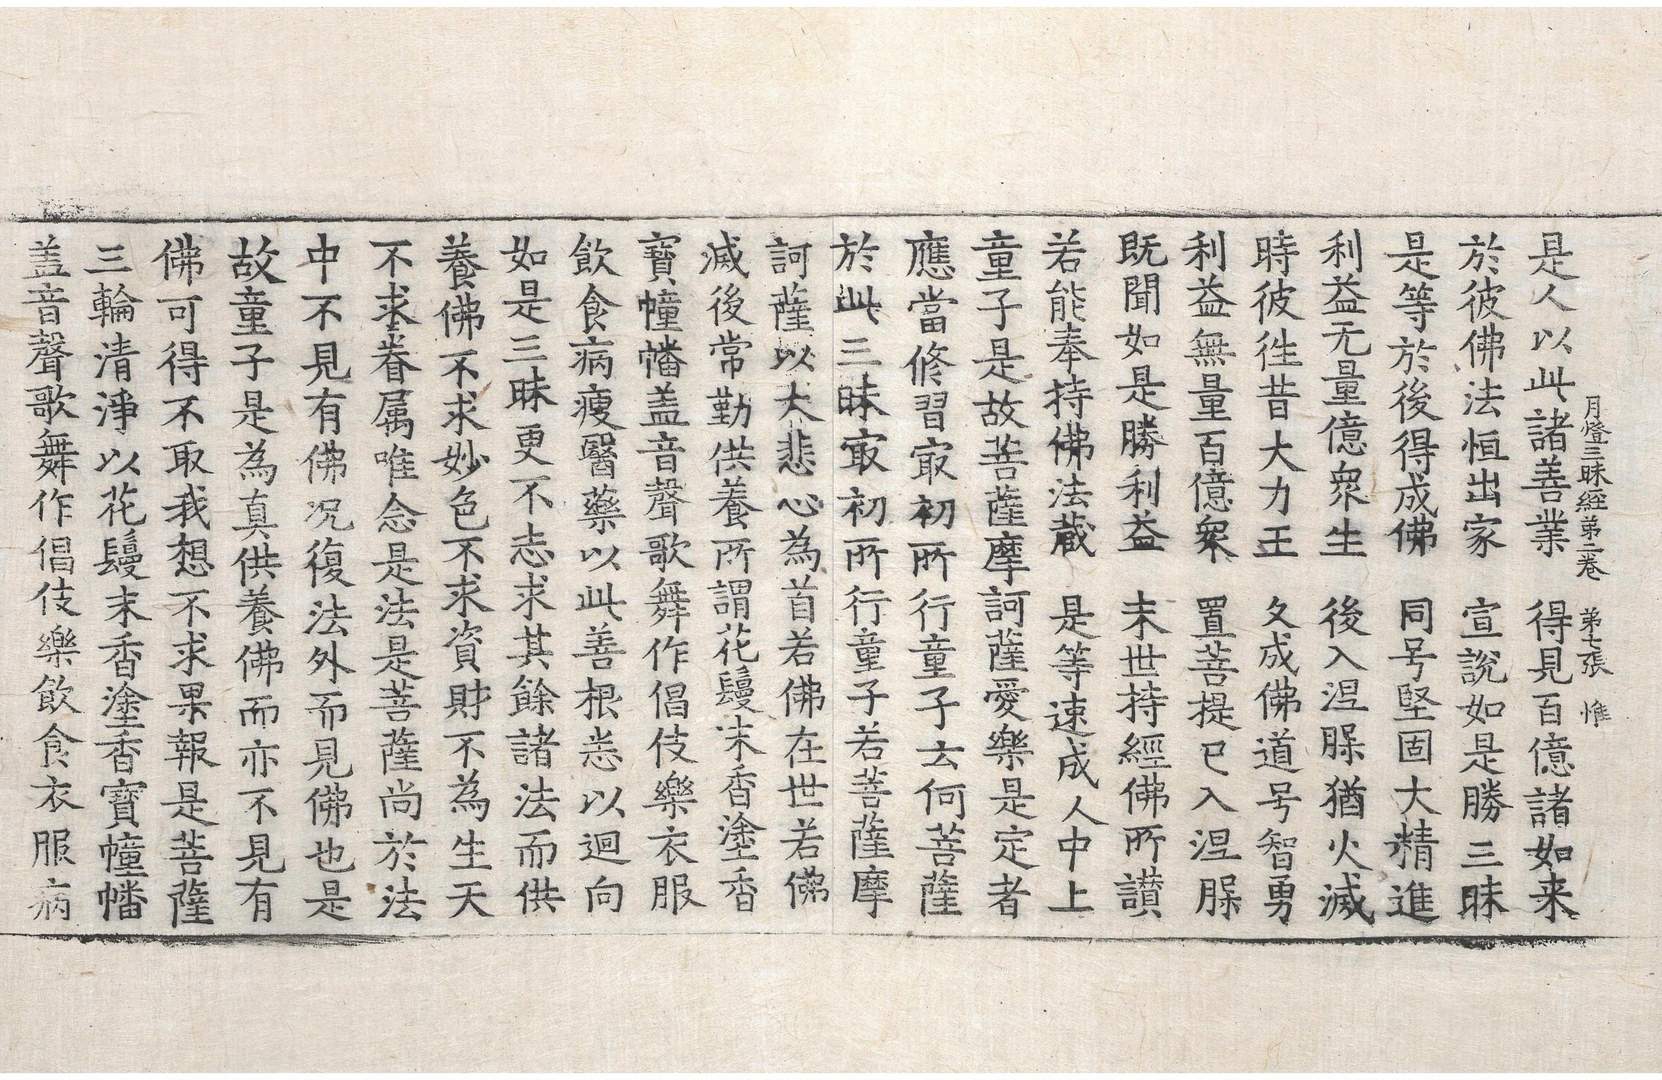 月燈三昧經苐二卷 苐七張 惟
是人以此諸善業 得見百億諸如来
於彼佛法恒出家 宣說如是勝三昧
是等於後得成佛 同号堅固大精進
利益无量億衆生 後入涅槃猶火滅
時彼徃昔大力王 久成佛道号智勇
利益無量百億衆 置菩提已入涅槃
既聞如是勝利益 末世持經佛所讃
若能奉持佛法藏 是等速成人中上
童子是故菩薩摩訶薩愛樂是定者
應當修習㝡初所行童子云何菩薩
於此三昧㝡初所行童子若菩薩摩
訶薩以大悲心為首若佛在世若佛
滅後常勤供養所謂花鬘末香塗香
寶幢幡盖音聲歌舞作倡伎樂衣服
飲食病瘦醫藥以此善根悉以迴向
如是三昧更不志求其餘諸法而供
養佛不求妙色不求資財不為生天
不求眷属唯念是法是菩薩尚於法
中不見有佛况復法外而見佛也是
故童子是為真供養佛而亦不見有
佛可得不取我想不求果報是菩薩
三輪清淨以花鬘末香塗香寶幢幡
盖音聲歌舞作倡伎樂飲食衣服病